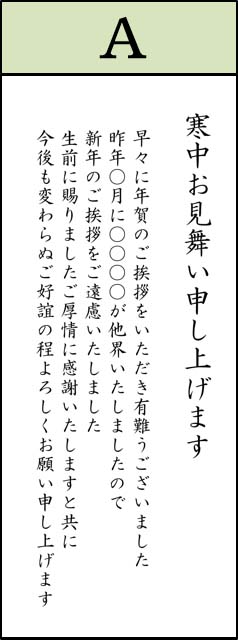 A
寒中お見舞い申し上げます
早々に年賀のご挨拶をいただき有難うございました
昨年〇月に〇〇〇〇が他界いたしましたので
新年のご挨拶をご遠慮いたしました
生前に賜りましたご厚情に感謝いたしますと共に
今後も変わらぬご好誼の程よろしくお願い申し上げます